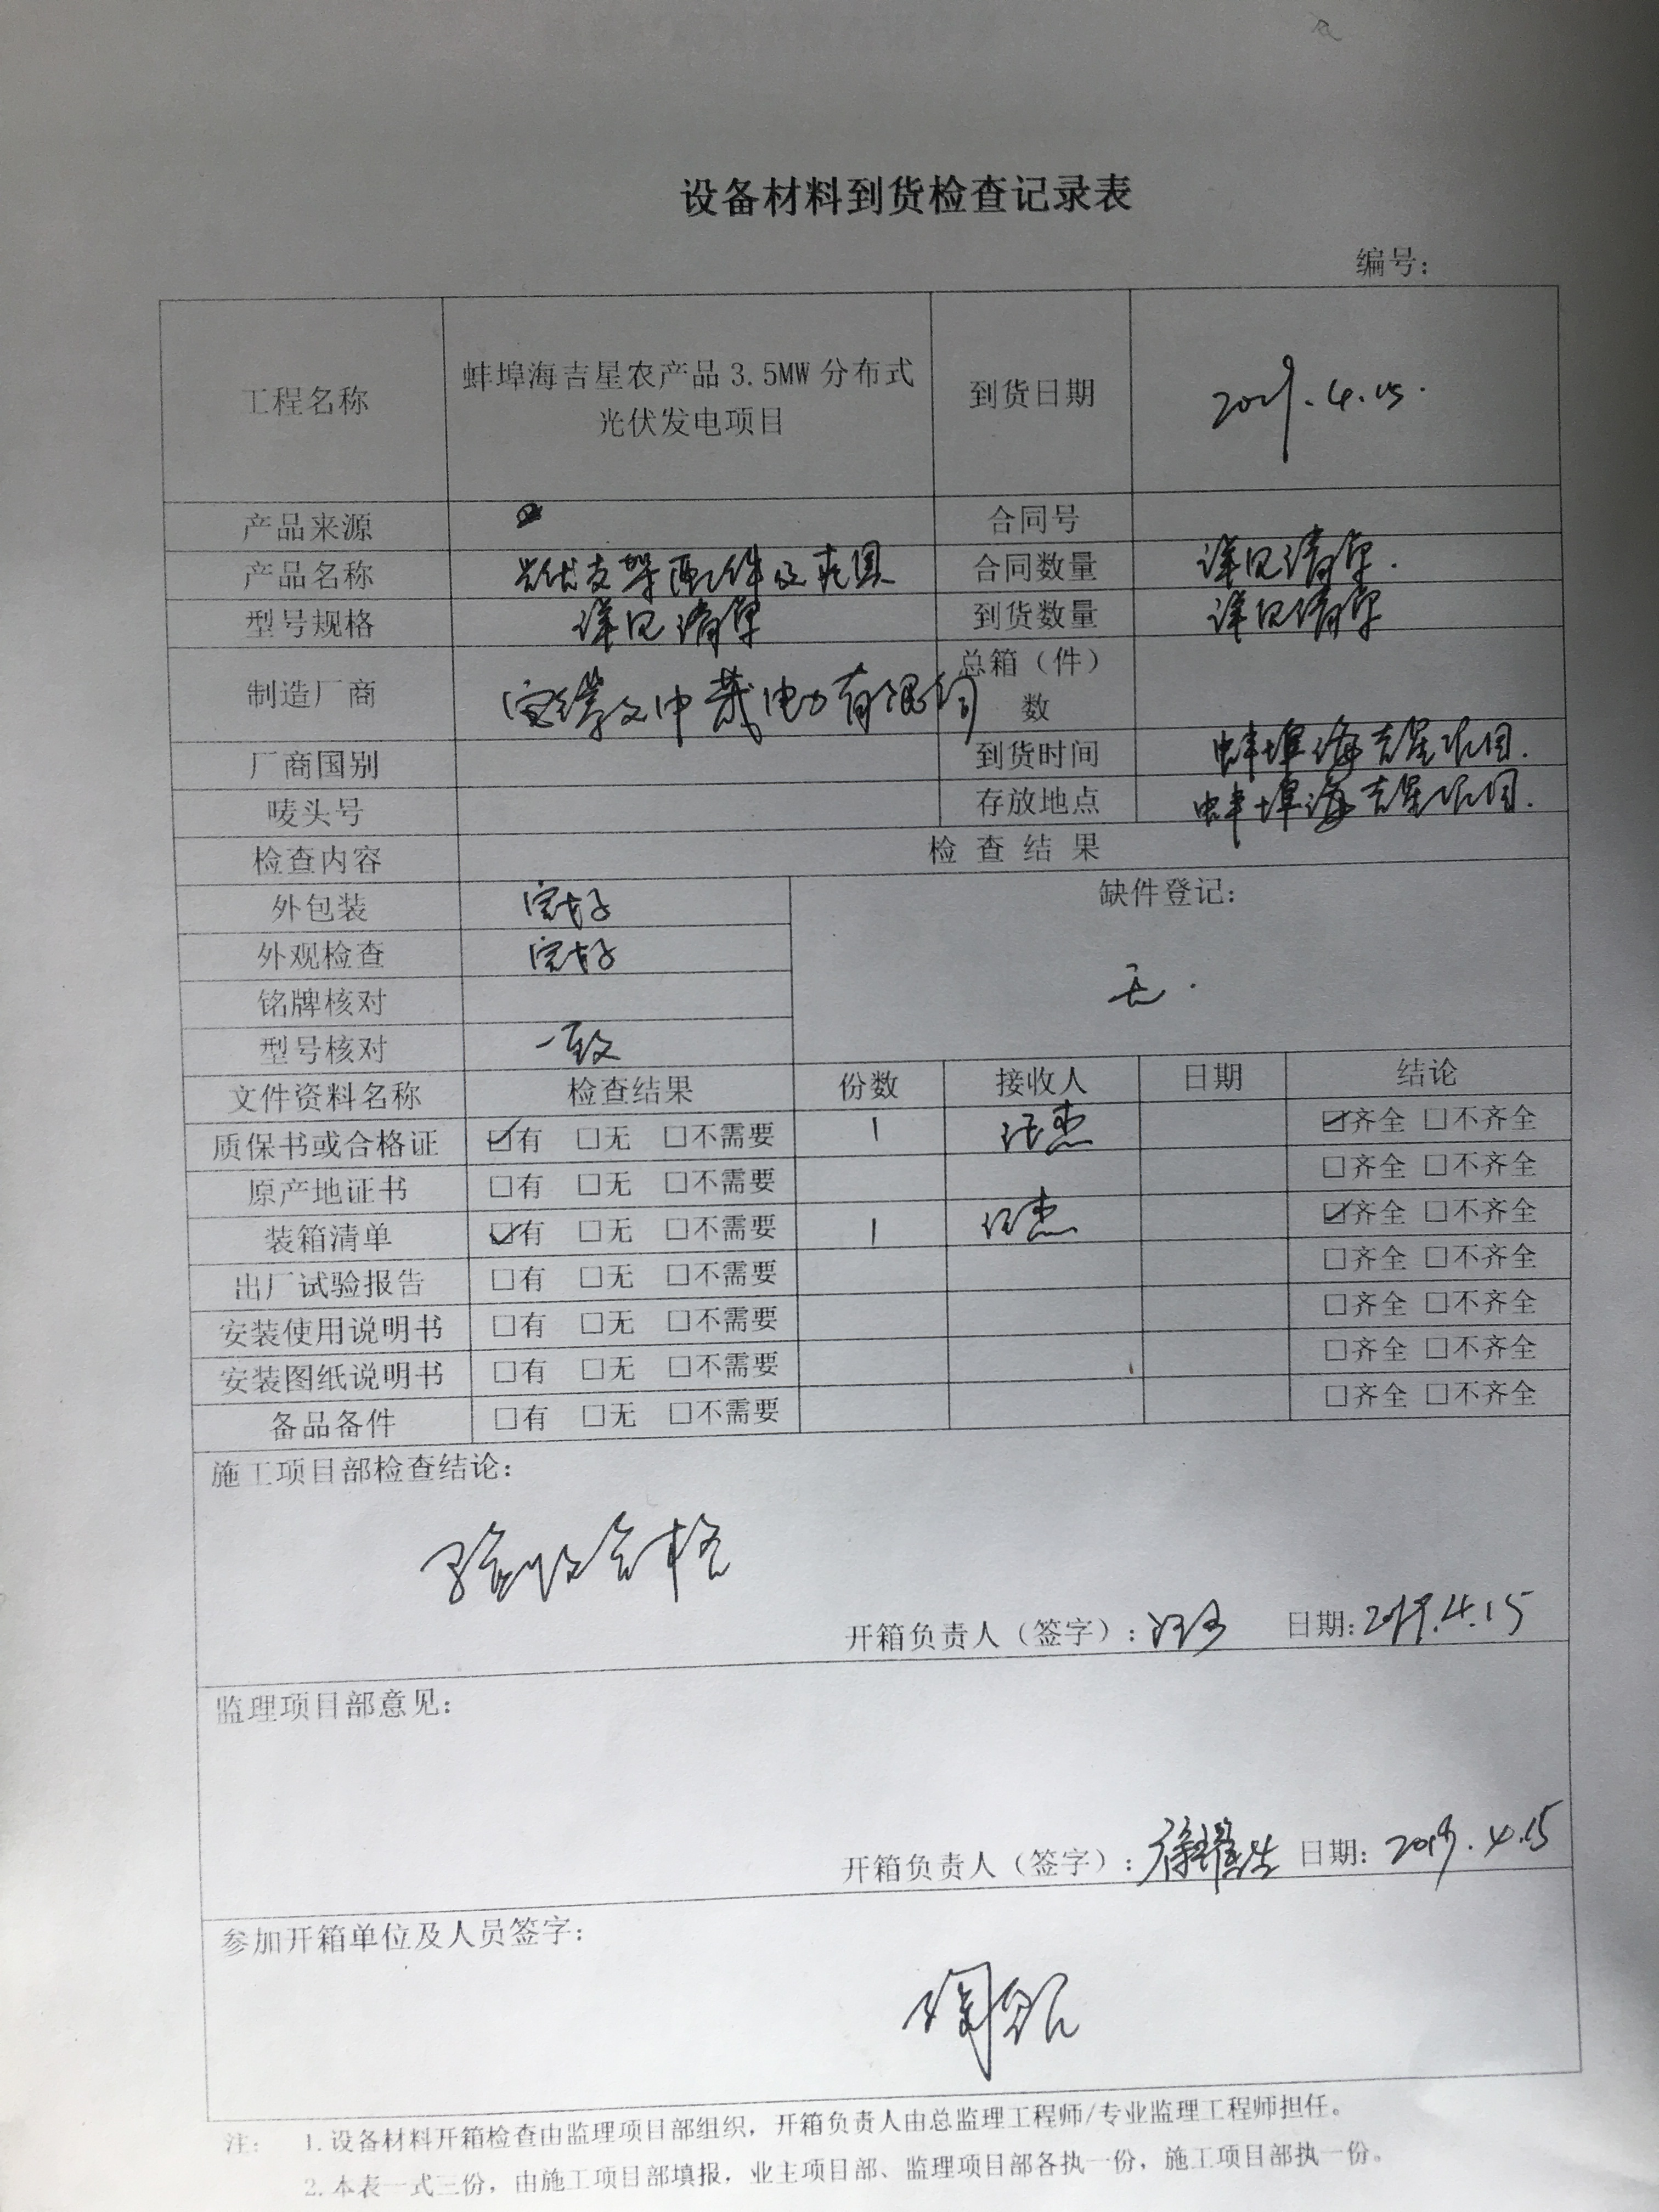 设备材料到货检查记录表
编号：
工程名称 蚌埠海吉星农产品 3.5MW 分布式光伏发电项目 到货日期 2019.4.15.
产品来源 合同号
产品名称 光伏支架配件及夹具 合同数量 详见清单.
型号规格 详见清单 到货数量 详见清单
制造厂商 电力有限公司 总箱（件）数
厂商国别 到货时间 蚌埠海吉星项目.
唛头号 存放地点 蚌埠海吉星项目.
检查内容 检 查 结 果
外包装 完好 缺件登记：
外观检查 完好 无.
铭牌核对
型号核对 一致
文件资料名称 检查结果 份数 接收人 日期 结论
质保书或合格证 ☑有 □无 □不需要 1 汪杰 ☑齐全 □不齐全
原产地证书 □有 □无 □不需要 □齐全 □不齐全
装箱清单 ☑有 □无 □不需要 1 汪杰 ☑齐全 □不齐全
出厂试验报告 □有 □无 □不需要 □齐全 □不齐全
安装使用说明书 □有 □无 □不需要 □齐全 □不齐全
安装图纸说明书 □有 □无 □不需要 □齐全 □不齐全
备品备件 □有 □无 □不需要 □齐全 □不齐全
施工项目部检查结论：
验收合格
开箱负责人（签字）： 日期：2019.4.15
监理项目部意见：
开箱负责人（签字）： 日期：2019.4.15
参加开箱单位及人员签字：
注： 1.设备材料开箱检查由监理项目部组织，开箱负责人由总监理工程师/专业监理工程师担任。
2.本表一式三份，由施工项目部填报，业主项目部、监理项目部各执一份，施工项目部执一份。